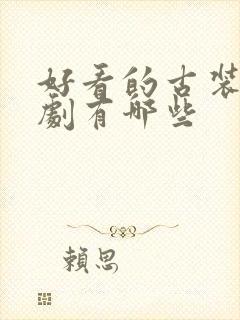 好看的古装
劇有哪些
賴思